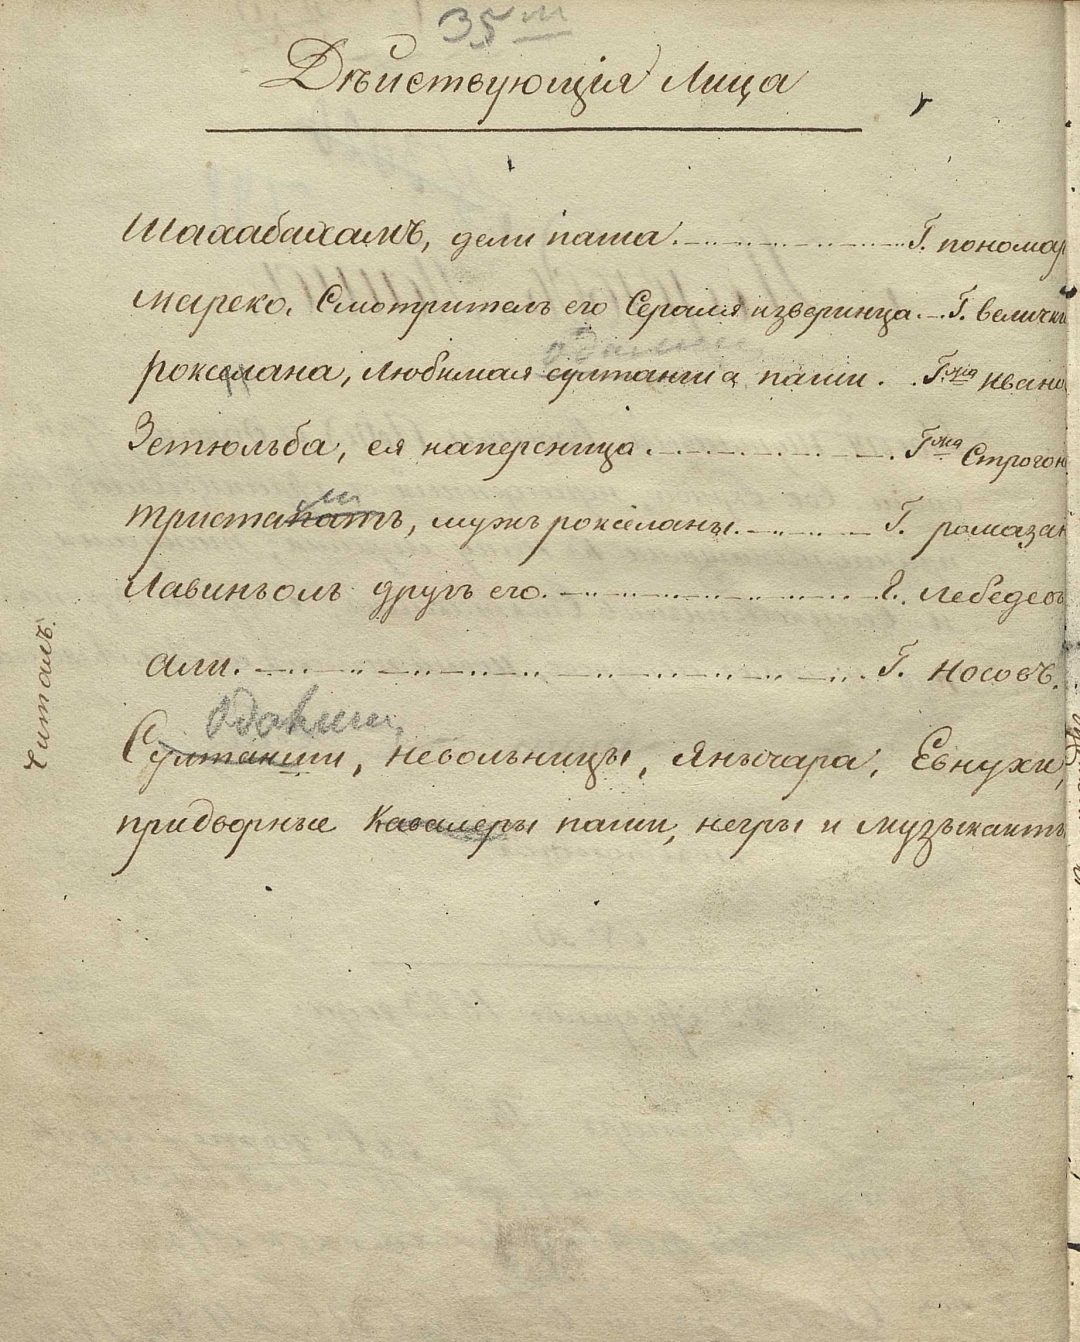 35 м
Дѣйствующія Лица
Шахабахамъ, дели паша. Г. пономар
Мареко. Смотритель его Сераля и зверинца. Г. величк
одалиска
роксалана, любимая султанша паши. Г-жа Ивано
Зетюльба, ея наперсница. Г-жа Строгон
тристапатъ, мужъ рокселаны. Г. ромазан
Лавиньоль другъ его. Г. лебедевъ
али. Г. Носовъ.
Султанши, невольницы, Янычара, Евнухи,
придворные Кавалеры паши, негры и музыканты
Читалъ.